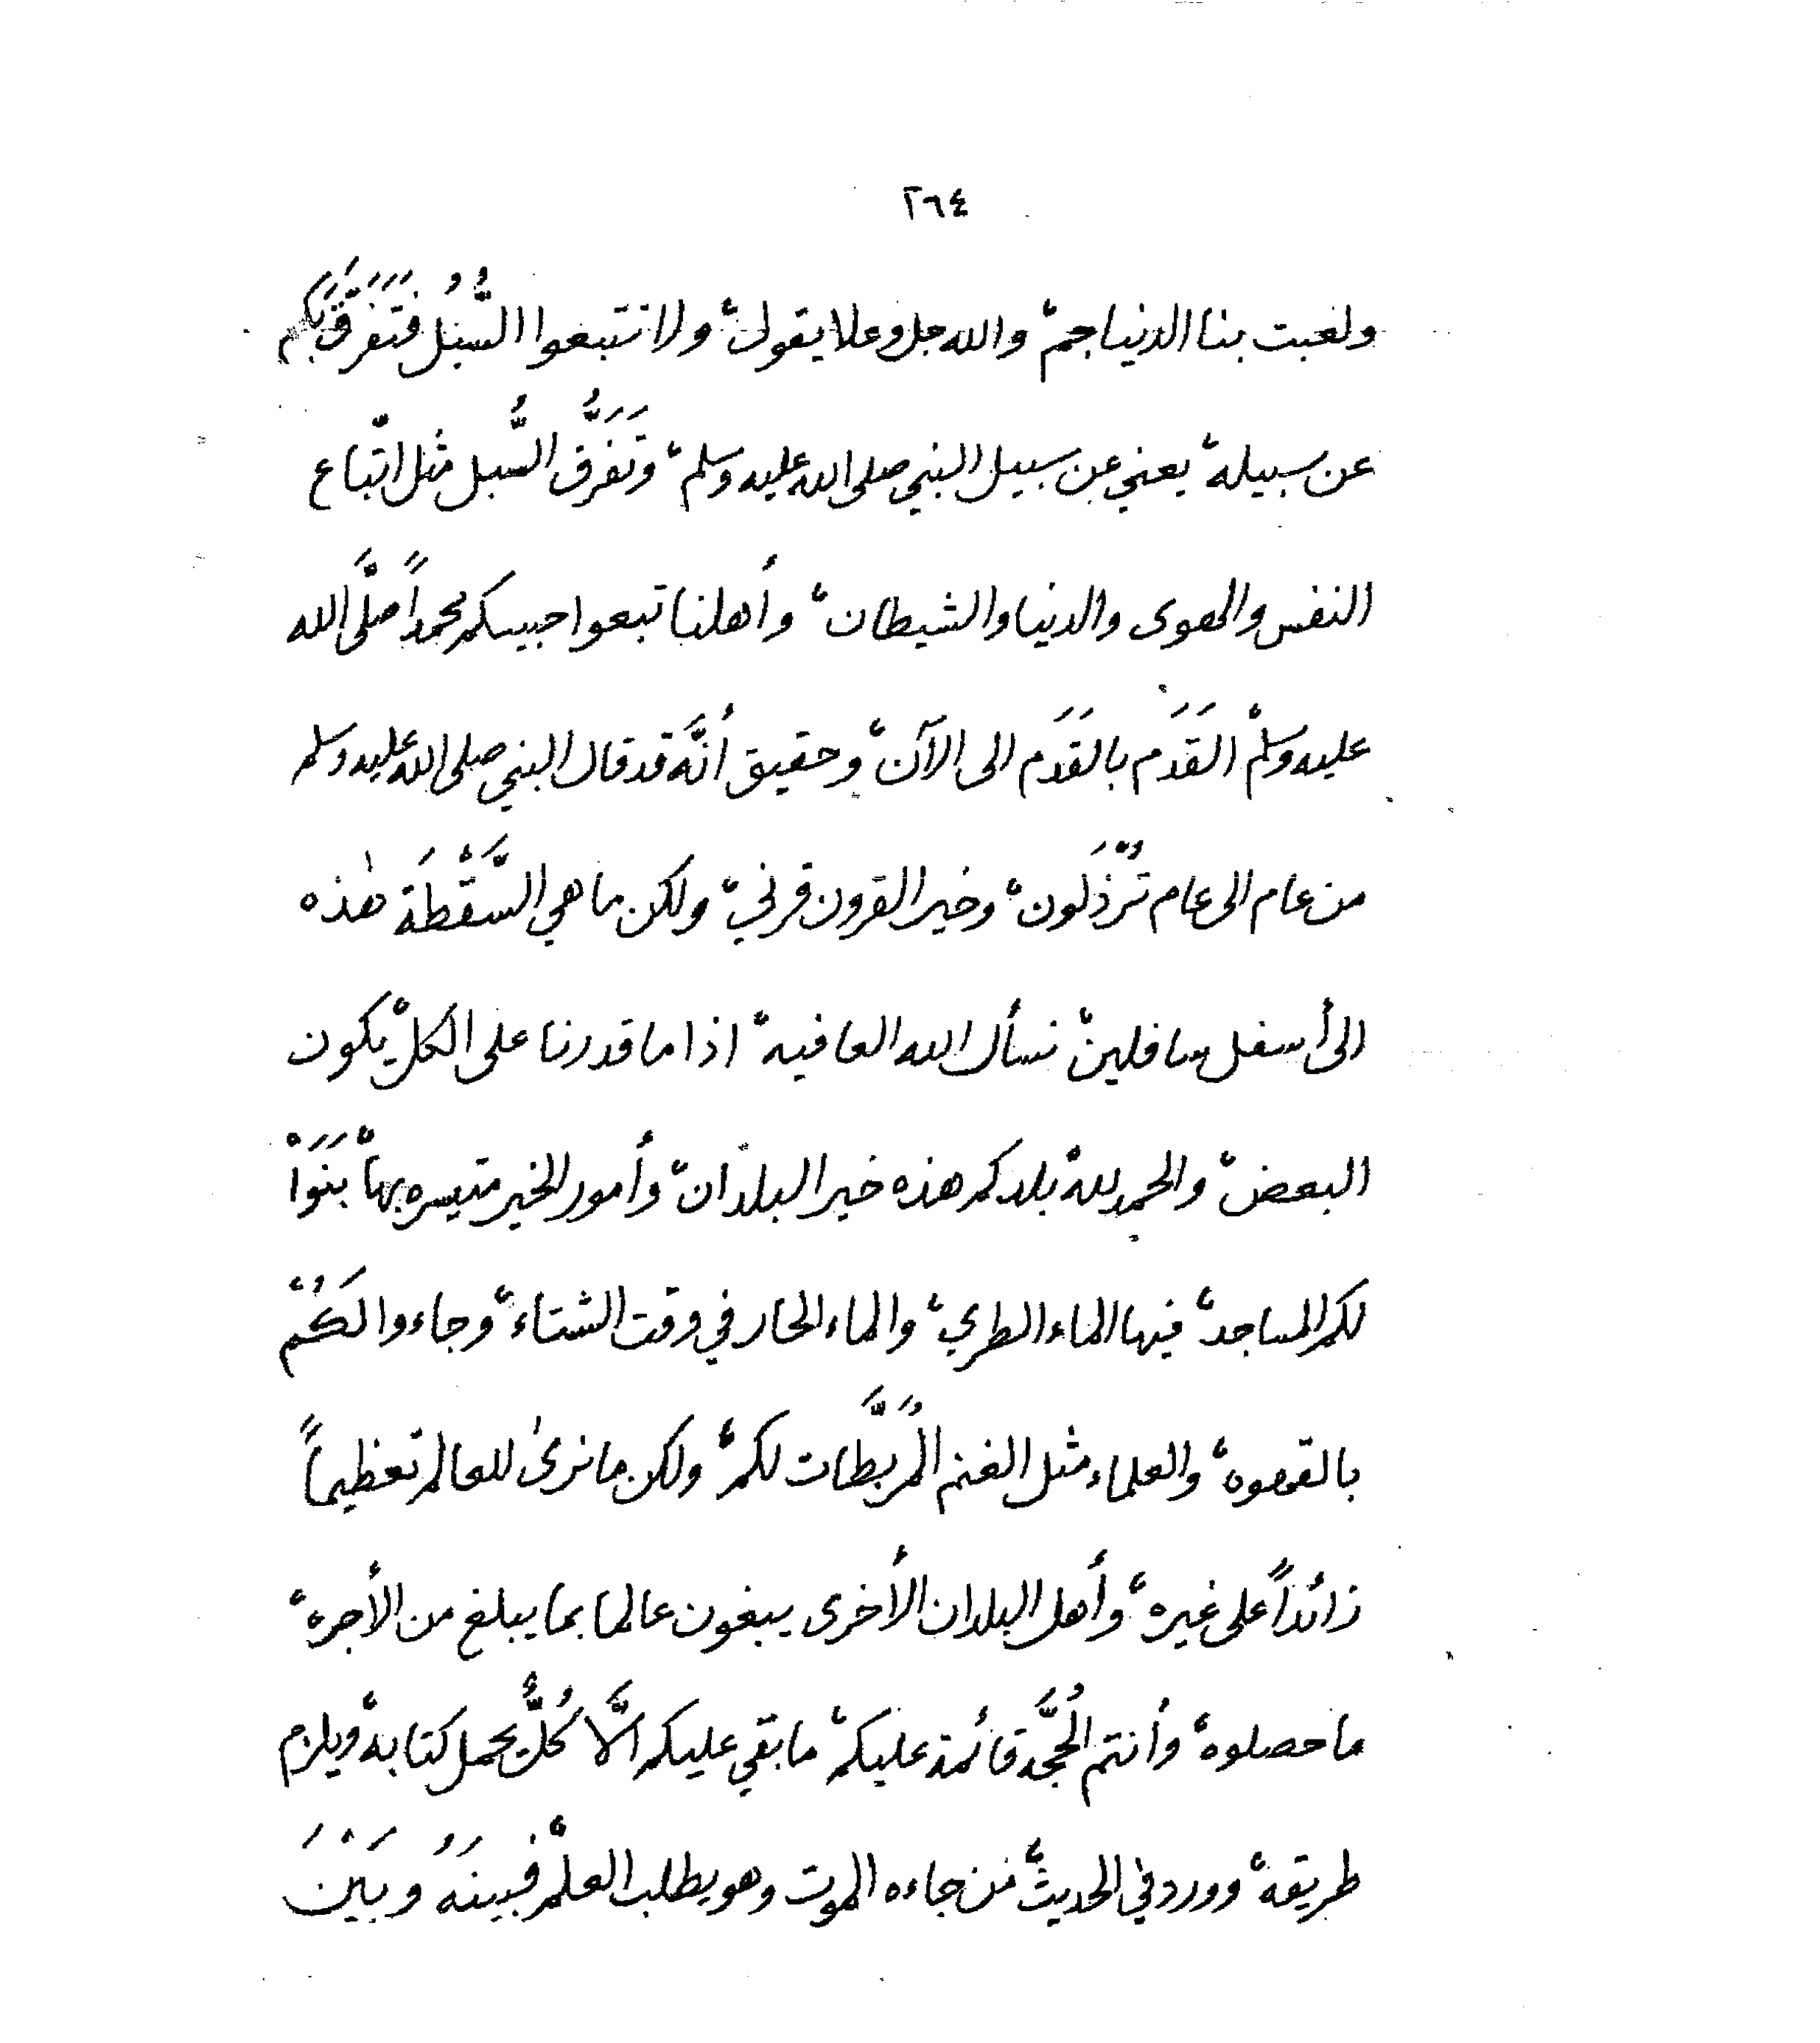 ٢٦٤
ولعبت بنا الدنيا جم، والله جل وعلا يقول، ولا تتبعوا السُّبُل فَتَفَرَّقَ بكم
عن سبيله، يعني عن سبيل النبي صلى الله عليه وسلم، وتَفَرُّق السُّبل مثل اتّباع
النفس والهوى والدنيا والشيطان، وأهلنا تبعوا حبيبكم محمداً صلَّى الله
عليه وسلم، القَدَم بالقَدَم الى الآن، وحقيق أنَّه قد قال النبي صلى الله عليه وسلم
من عام الى عام تُرْذَلون، وخير القرون قرني، ولكن ما هي السَّقْطَة هٰذه
الى أسفل سافلين، نسأل الله العافيه، اذا ما قدرنا على الكل، يكون
البعض، والحمد لله، بلدكم هذه خير البلدان، وأمور الخير متيسره بها، بَنَوْا
لكم المساجد، فيها الماء الطري، والماء الحار في وقت الشتاء، وجاءوا لَكُمْ
بالقهوه، والعلماء مثل الغنم المُرَبَّطات لكم، ولكن ما نرىٰ للعالم تعظيماً
زائداً على غيره، وأهل البلدان الأخرى يبغون عالما بما يبلغ من الأجره،
ما حصلوه، وأنتم الحُجَّة قائمة عليكم، ما بقي عليكم الَّا كُلٌّ يحمل كتابه، ويلزم
طريقه، وورد في الحديث، من جاءه الموت وهو يطلب العلم، فبينَهُ وبَيْنَ